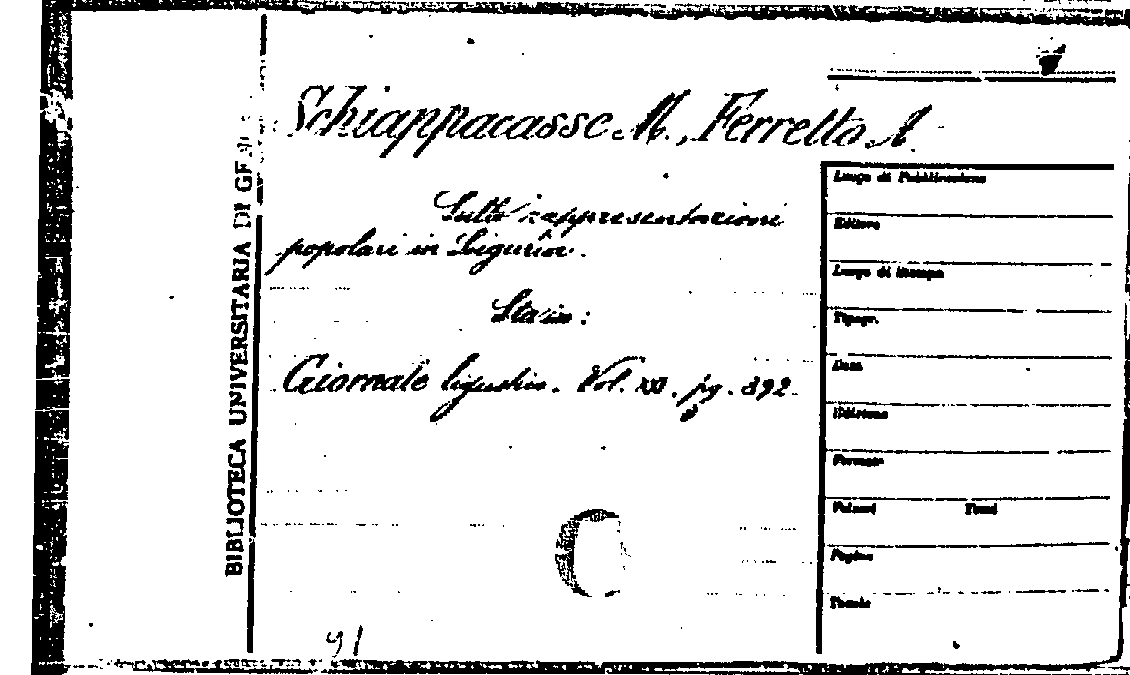 Schiappacasse M., Ferretto A.
Sulle rappresentazioni
popolari in Liguria.
Sta in:
Giornale ligustico. Vol. XXI. pg. 392.
91
BIBLIOTECA UNIVERSITARIA DI GE
Luogo di Pubblicazione
Editore
Luogo di Stampa
Tipogr.
Data
Edizione
Formato
Volumi Tomi
Pagine
Tavole